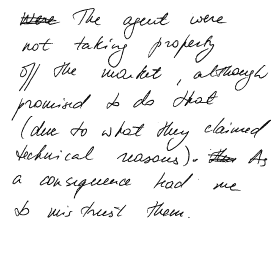 The agent were
not taking property
off the market, although
promised to do that
(due to what they claimed
technical reasons). As
a consequence had me
to mistrust them.